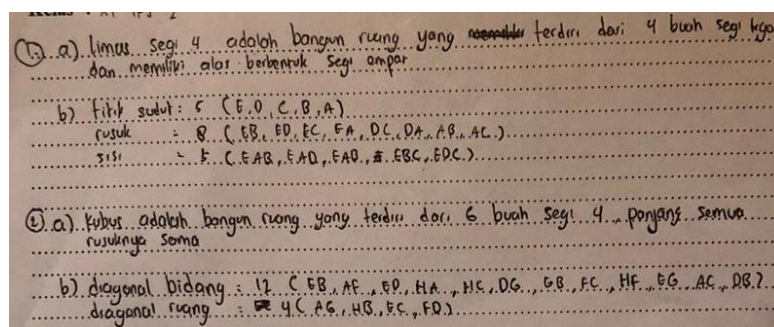 Kelas : XI IPS 2
1. a) limas segi 4 adalah bangun ruang yang terdiri dari 4 buah segi tiga
dan memiliki alas berbentuk segi ampat
b) titik sudut : 5 (E, D, C, B, A)
rusuk = 8 (EB, ED, EC, EA, DC, DA, AB, AC.)
sisi = 5 (EAB, EAD, EAB, EBC, EDC.)
2. a) Kubus adalah bangun ruang yang terdiri dari 6 buah segi 4, panjang semua
rusuknya sama
b) diagonal bidang : 12 (EB, AF, ED, HA, HC, DG, GB, FC, HF, EG, AC, DB.)
diagonal ruang : 4 (AG, HB, EC, FD.)